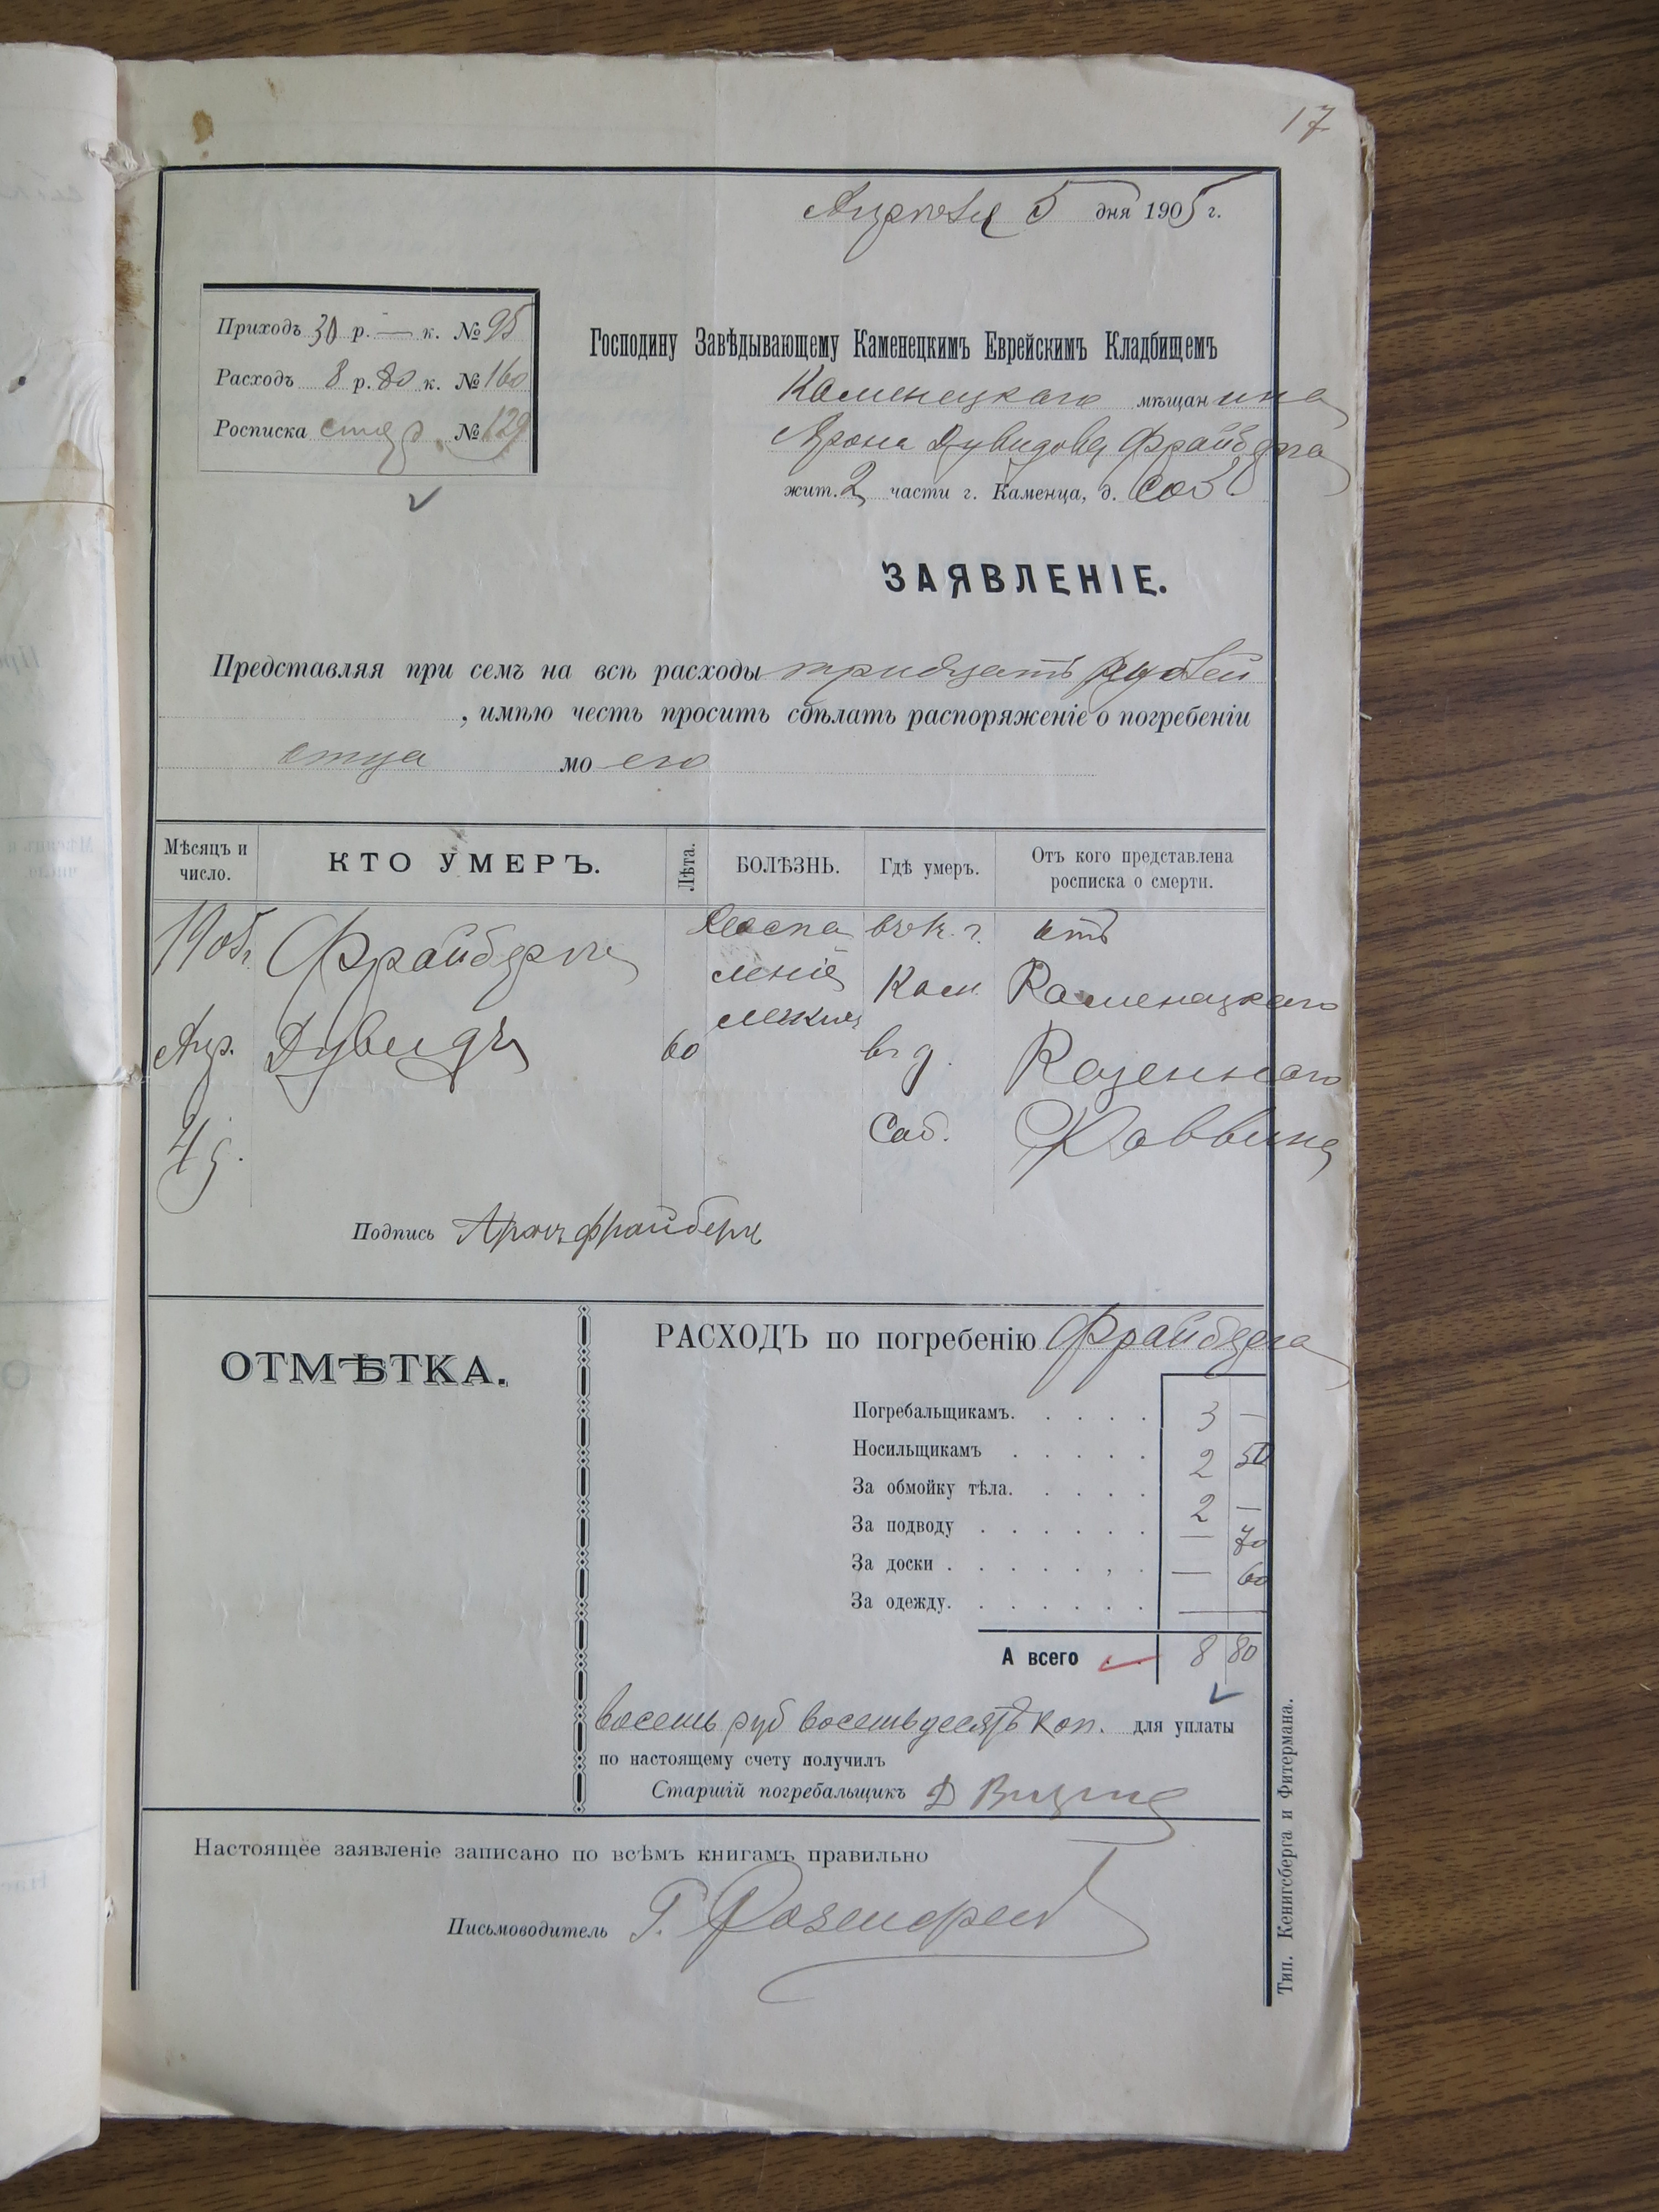 17
Апрѣля 5 дня 1905 г.
Приходъ 30 р. — к. № 95
Расходъ 8 р. 80 к. № 160
Росписка № 129
Господину Завѣдывающему Каменецкимъ Еврейскимъ Кладбищемъ
Каменецкаго мѣщанина
Арона Дувидова Фрайберга
жит. 2 части г. Каменца, д. Соб
ЗАЯВЛЕНІЕ.
Представляя при семъ на всѣ расходы тридцать рублей
, имѣю честь просить сдѣлать распоряженіе о погребеніи
отца моего
Мѣсяцъ и число.
КТО УМЕРЪ.
Лѣта.
БОЛѢЗНЬ.
Гдѣ умеръ.
Отъ кого представлена росписка о смерти.
1905 г. Фрайбергъ Воспа въ г. отъ
леніе Кам. Каменецкаго
Апр. Дувидъ 60 легких въ д. Казеннаго
4 д. Соб. Раввина
Подпись Аронъ Фрайбергъ
ОТМѢТКА.
РАСХОДЪ по погребенію Фрайберга
Погребальщикамъ. . . . . 3 —
Носильщикамъ . . . . . 2 50
За обмойку тѣла. . . . . 2 —
За подводу . . . . . . — 70
За доски . . . . . . , . — 60
За одежду. . . . . . . —
А всего . . 8 80
восемь руб восемьдесятъ коп. для уплаты
по настоящему счету получилъ
Старшій погребальщикъ Д
Настоящее заявленіе записано по всѣмъ книгамъ правильно
Письмоводитель Г. Розенфельд
Тип. Кенигсберга и Фитермана.